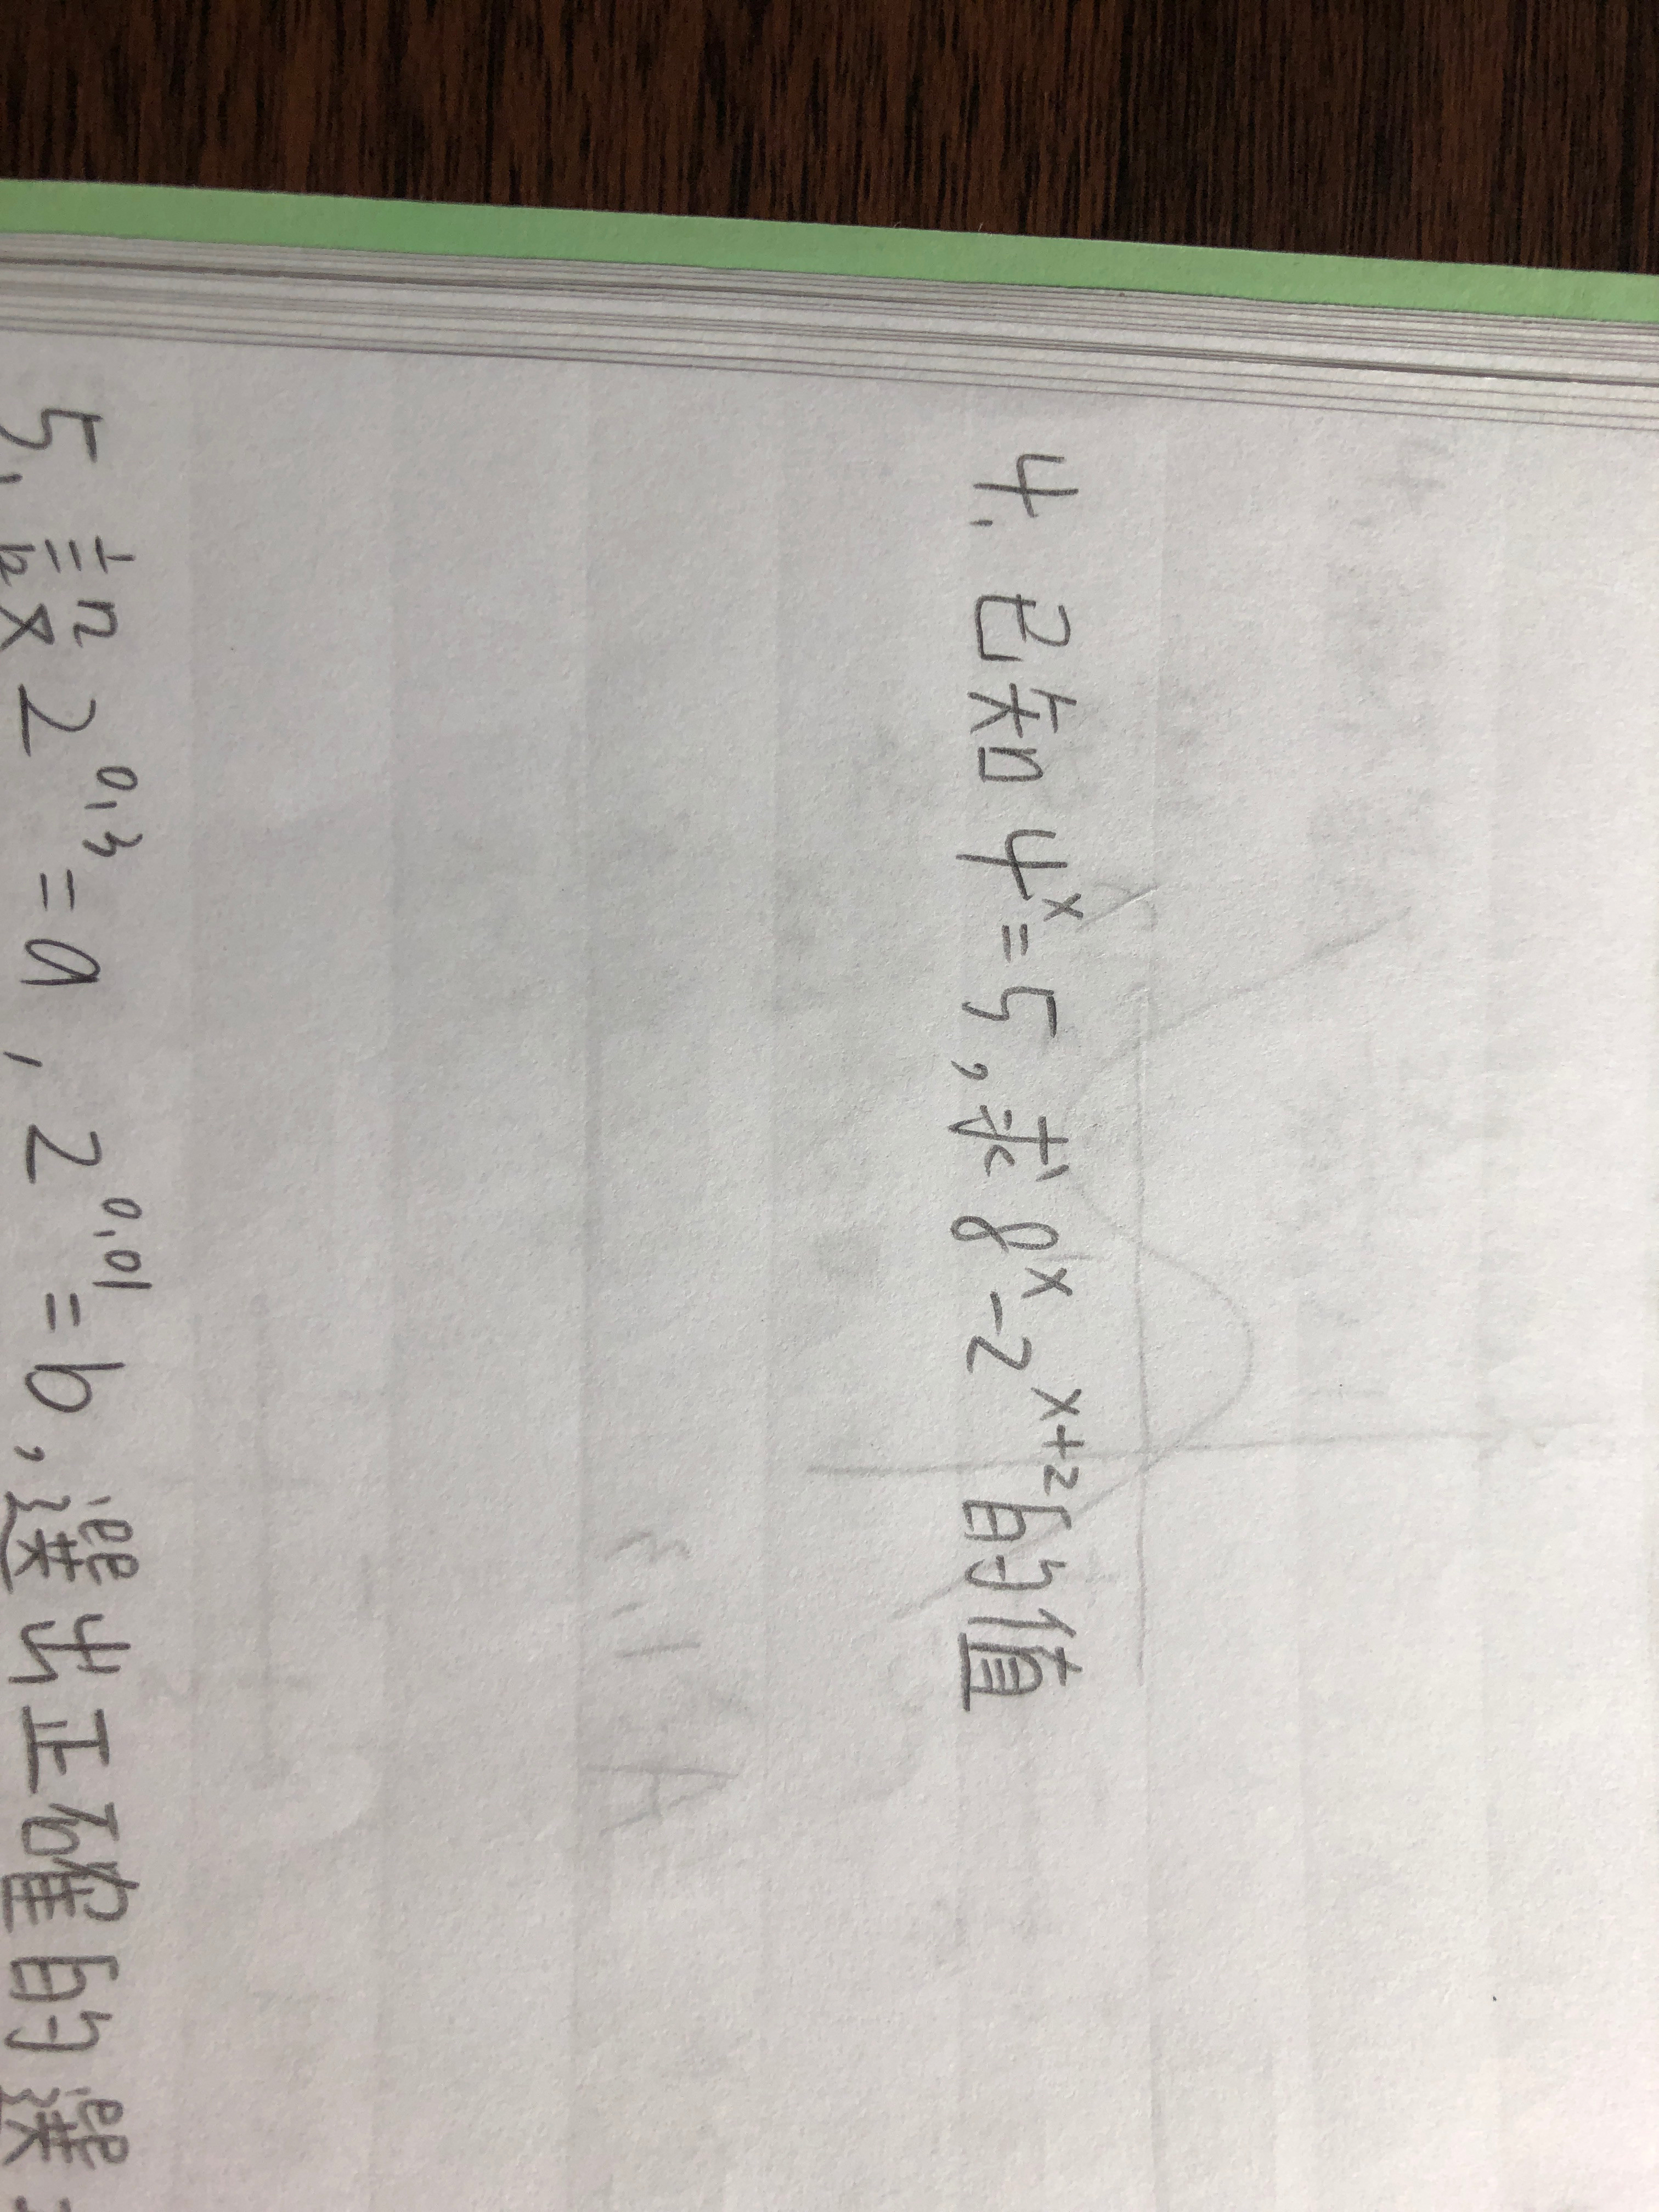 4. 已知 4ˣ=5,求8ˣ-2ˣ⁺²的值
5. 設 2^0.3=a, 2^0.01=b,選出正確的選